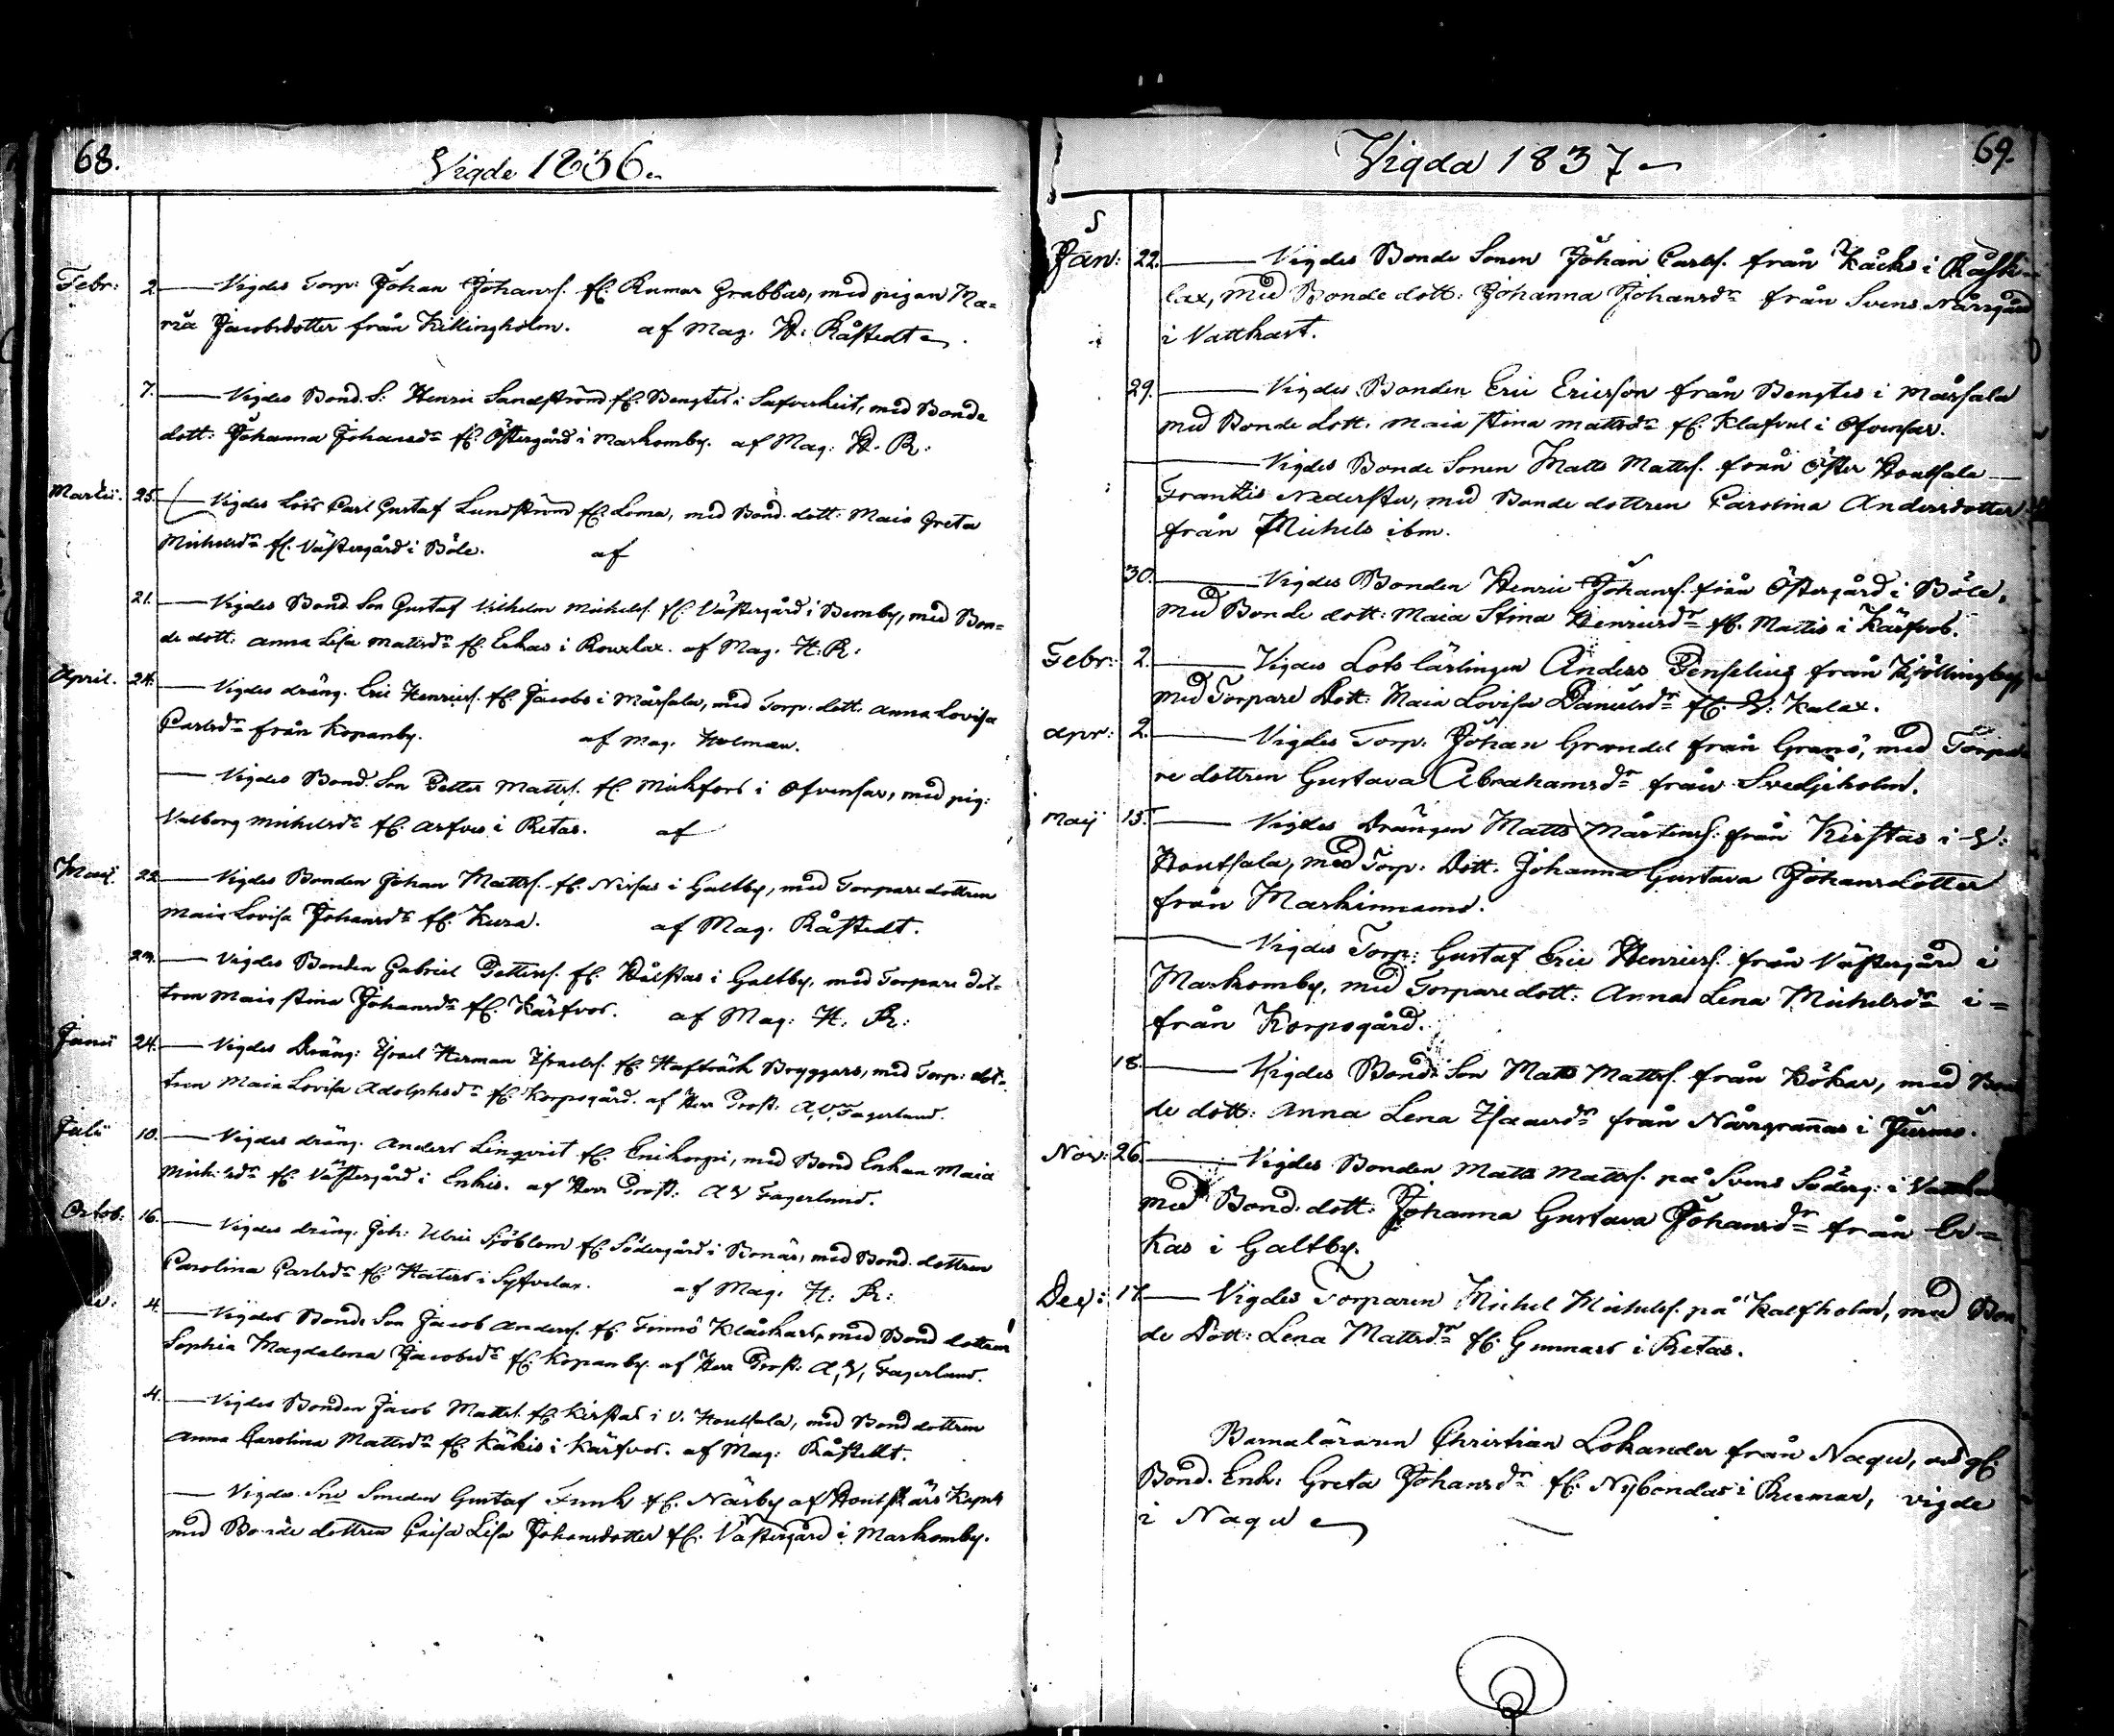 68.
Vigde 1836.
Febr: 2. Vigdes Torp: Johan Johanss. fl. Rumar Grabbas, med pigan Ma=
ria Jacobsdotter från Killingholm. af Mag. H: Råstedt
7. Vigdes Bond. S: Henric Sandström fl. Bengtes i Safverkeit, med Bonde
dott: Johanna Johansdr fl. Östergård i Markomby. af Mag: H. R:
Martii. 25. Vigdes Lots Carl Gustaf Lundström fl. Loma, med Bond. dott: Maia Greta
Michelsdr fl. Västergård i Böle. af
21. Vigdes Bond. Son Gustaf Vilhelm Michelss. fl. Västergård i Bemby, med Bon=
de dott: Anna Lisa Mattsdr fl. Erkas i Rowlax. af Mag. H: R:
April. 24. Vigdes dräng. Eric Henricss. fl. Jacobs i Mårsala, med Torp: dott: Anna Lovisa
Carlsdr från Kopanby. af Mag. Holman.
Vigdes Bond. Son Petter Mattss. fl. Mickfors i Ofvensor, med pig:
Valborg Michelsdr fl. Arfves i Retas. af
Maij. 22. Vigdes Bonden Johan Mattss. fl. Nissas i Galtby, med Torpare dottren
Maia Lovisa Johansdr fl. Kura. af Mag. Råstedt.
Vigdes Bonden Gabriel Petterss. fl. Hålstas i Galtby, med Torpare dot=
tren Maia Stina Johansdr fl. Kärfvor. af Mag: H: R:
Junii 24. Vigdes Dräng: Israel Herman Israelss. fl. Hafträsk Bryggars, med Torp: dot=
tren Maia Lovisa Adolphsdr fl. Korpogård. af Herr Prost: A, V, Fagerlund.
Julii 10. Vigdes dräng. Anders Linqvist fl. Enikorpi, med Bond Enkan Maia
Mich:sdr fl. Västergård i Enkis. af Herr Prost: A V Fagerlund.
Octob: 16. Vigdes dräng. Joh: Ulric Sjöblom fl. Södergård i Bonäs, med Bond. dottren
Carolina Carlsdr fl. Haters i Syfvelax. af Mag. H: R:
4. Vigdes Bonde Son Jacob Anderss. fl. Finnö Klåskars, med Bond dottren
Sophia Magdalena Jacobsdr fl. Kopanby. af Herr Prost: A, V, Fagerlund.
4. Vigdes Bonden Jacob Mattss. fl. Kirstas i V. Houtsala, med Bond dottren
Anna Carolina Mattsdr fl. Käkis i Kärfvor. af Mag: Råstedt.
Vigdes Smeden Gustaf Funk fl. Närby af Houtskärs Kapell
med Bonde dottren Caisa Lisa Johansdotter fl. Västergård i Markomby.
Vigda 1837
69.
Jan: 22. Vigdes Bonde Sonen Johan Carlss. från Kåcks i Råsk=
lax, med Bonde dott: Johanna Johansdr från Svens Nårrgård
i Vattkast.
29. Vigdes Bonden Eric Ericsson från Bengtes i Mårsala
med Bonde dott. Maia Stina Mattsdr fl. Klafvel i Ofvensor.
Vigdes Bonde Sonen Matts Mattss. från Öster Houtsala
Franttis Nederster, med Bonde dottren Carolina Andersdotter
från Michels ibm.
30. Vigdes Bonden Henric Johanss. från Östergård i Böle,
med Bonde dott: Maia Stina Henricsdr fl. Mattis i Kärfvob.
Febr: 2. Vigdes Lots lärlingen Anders Penselius från Kjöllingby
med Torpare Dott: Maia Lovisa Danielsdr fl. V: Kalax.
Apr: 2. Vigdes Torp: Johan Grandel från Granö, med Torpa
re dottren Gustava Abrahamsdr från Svedjeholm.
Maij 15. Vigdes Drängen Matts Mårtenss: från Kirstas i V:
Houtsala, med Torp: Dott. Johanna Gustava Johansdotter
från Markinnamo.
Vigdes Torp: Gustaf Eric Henricss. från Västergård i
Markomby, med Torpare dott: Anna Lena Michelsdr i=
från Korpogård.
18. Vigdes Bond: Son Matts Mattss. från Kökar, med Bon
de dott: Anna Lena Isacsdr från Nårrgrannas i Jurmo.
Nov: 26. Vigdes Bonden Matts Mattss. på Svens Söderg: i Vattkast
med Bond. dott: Johanna Gustava Johansdr från Er=
kas i Galtby.
Dec: 17. Vigdes Torparen Michel Michelss. på Kalfholm, med Bon
de Dott: Lena Mattsdr fl. Gunnars i Retas.
Barnaläraren Christian Lokander från Nagu, och
Bond. Enk: Greta Johansdr fl. Nybondas i Rumar, vigde
i Nagu